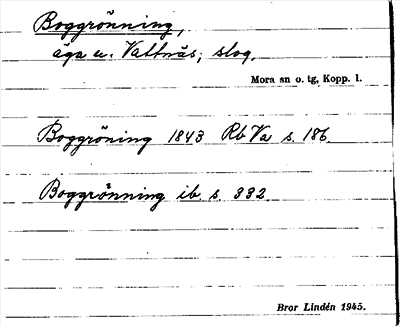 Boggrönning,
äga u. Vattnäs; slog.
Mora sn o. tg, Kopp. l.
Boggröning 1843 Rb Va s. 186.
Boggrönning ib. s. 332.
Bror Lindén 1945.